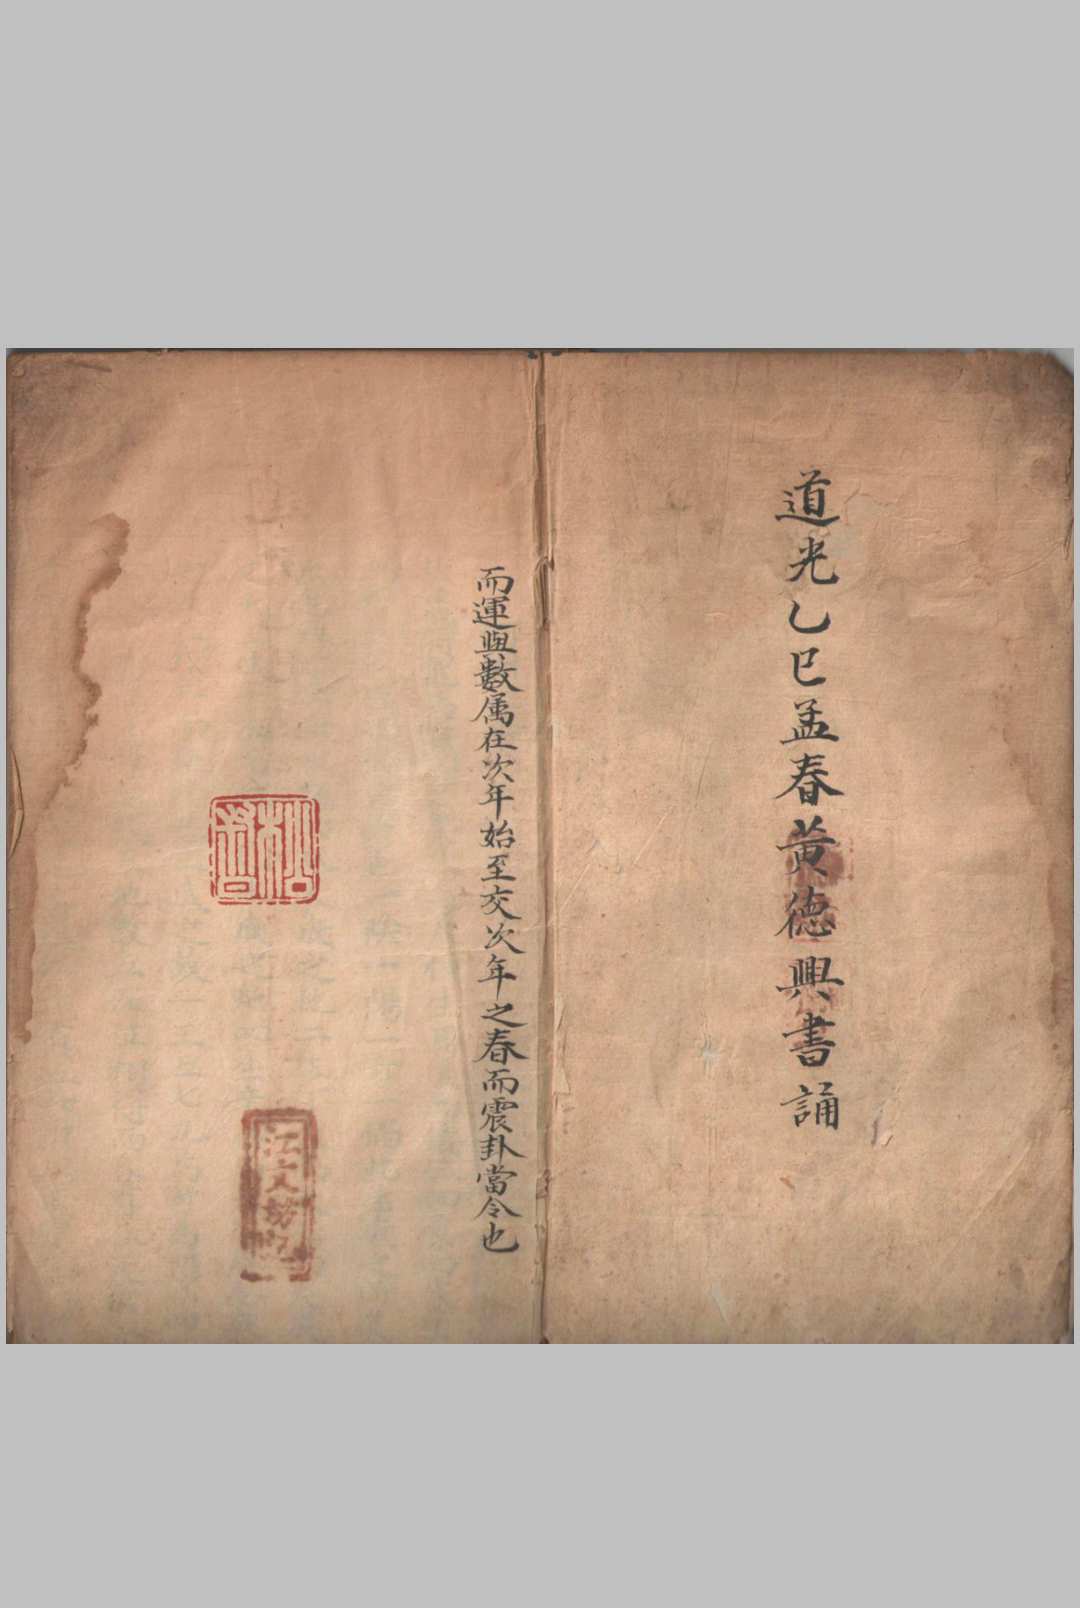 道光乙巳孟春黃德興書誦
而運與數属在次年始至交次年之春而震卦當令也
江文